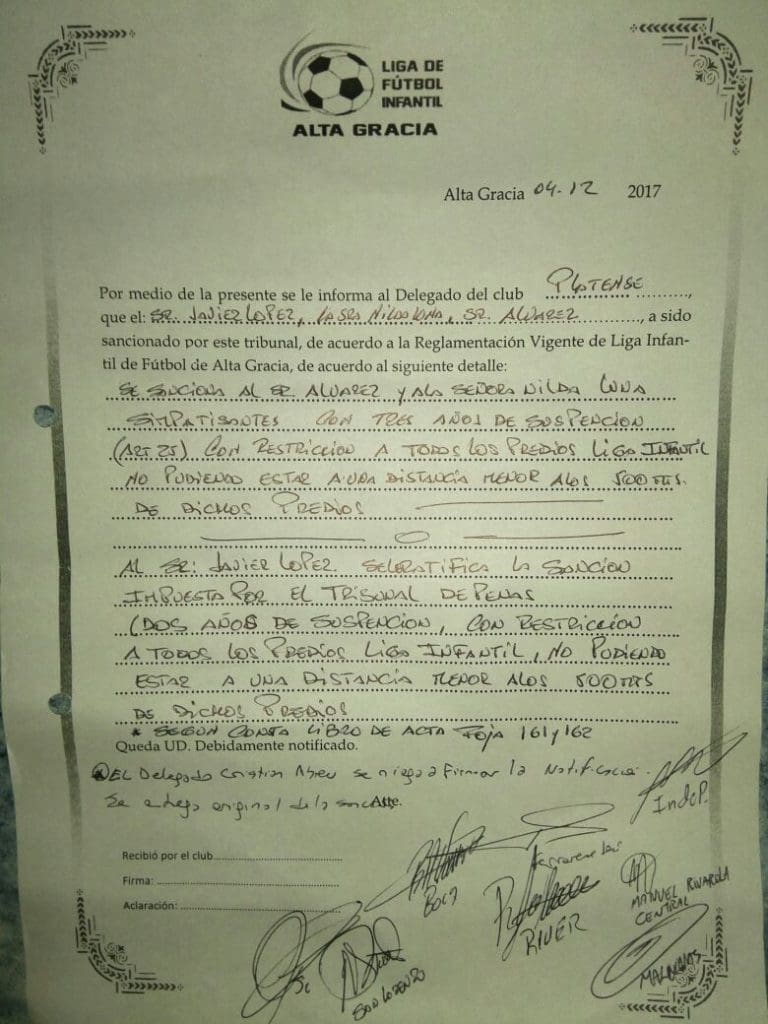 LIGA DE
FÚTBOL
INFANTIL
ALTA GRACIA
Alta Gracia 04-12 2017
Por medio de la presente se le informa al Delegado del club PLATENSE
que el: SR. JAVIER LOPEZ, LA SRA NILDA LUNA, SR. ALVAREZ, a sido
sancionado por este tribunal, de acuerdo a la Reglamentación Vigente de Liga Infan-
til de Fútbol de Alta Gracia, de acuerdo al siguiente detalle:
SE SANCIONA AL SR. ALVAREZ Y A LA SEÑORA NILDA LUNA
SIMPATISANTES CON TRES AÑOS DE SUSPENCION
(ART 25) CON RESTRICCION A TODOS LOS PREDIOS LIGA INFANTIL
NO PUDIENDO ESTAR A UNA DISTANCIA MENOR A LOS 500 MTS.
DE DICHOS PREDIOS
AL SR: JAVIER LOPEZ SE LE RATIFICA LA SANCION
IMPUESTA POR EL TRIBUNAL DE PENAS
(DOS AÑOS DE SUSPENCION, CON RESTRICCION
A TODOS LOS PREDIOS LIGA INFANTIL, NO PUDIENDO
ESTAR A UNA DISTANCIA MENOR A LOS 500 MTS
DE DICHOS PREDIOS
* SEGUN CONSTA LIBRO DE ACTA FOJA 161 y 162
Queda UD. Debidamente notificado.
EL Delegado Cristian Abreu se niega a Firmar la Notificación.
Se entrega original de la
IndeP.
Recibió por el club
Firma:
Aclaración:
BOCA
RIVER
MANUEL RIVAROLA
CENTRAL
SAN LORENZO
MALVINAS